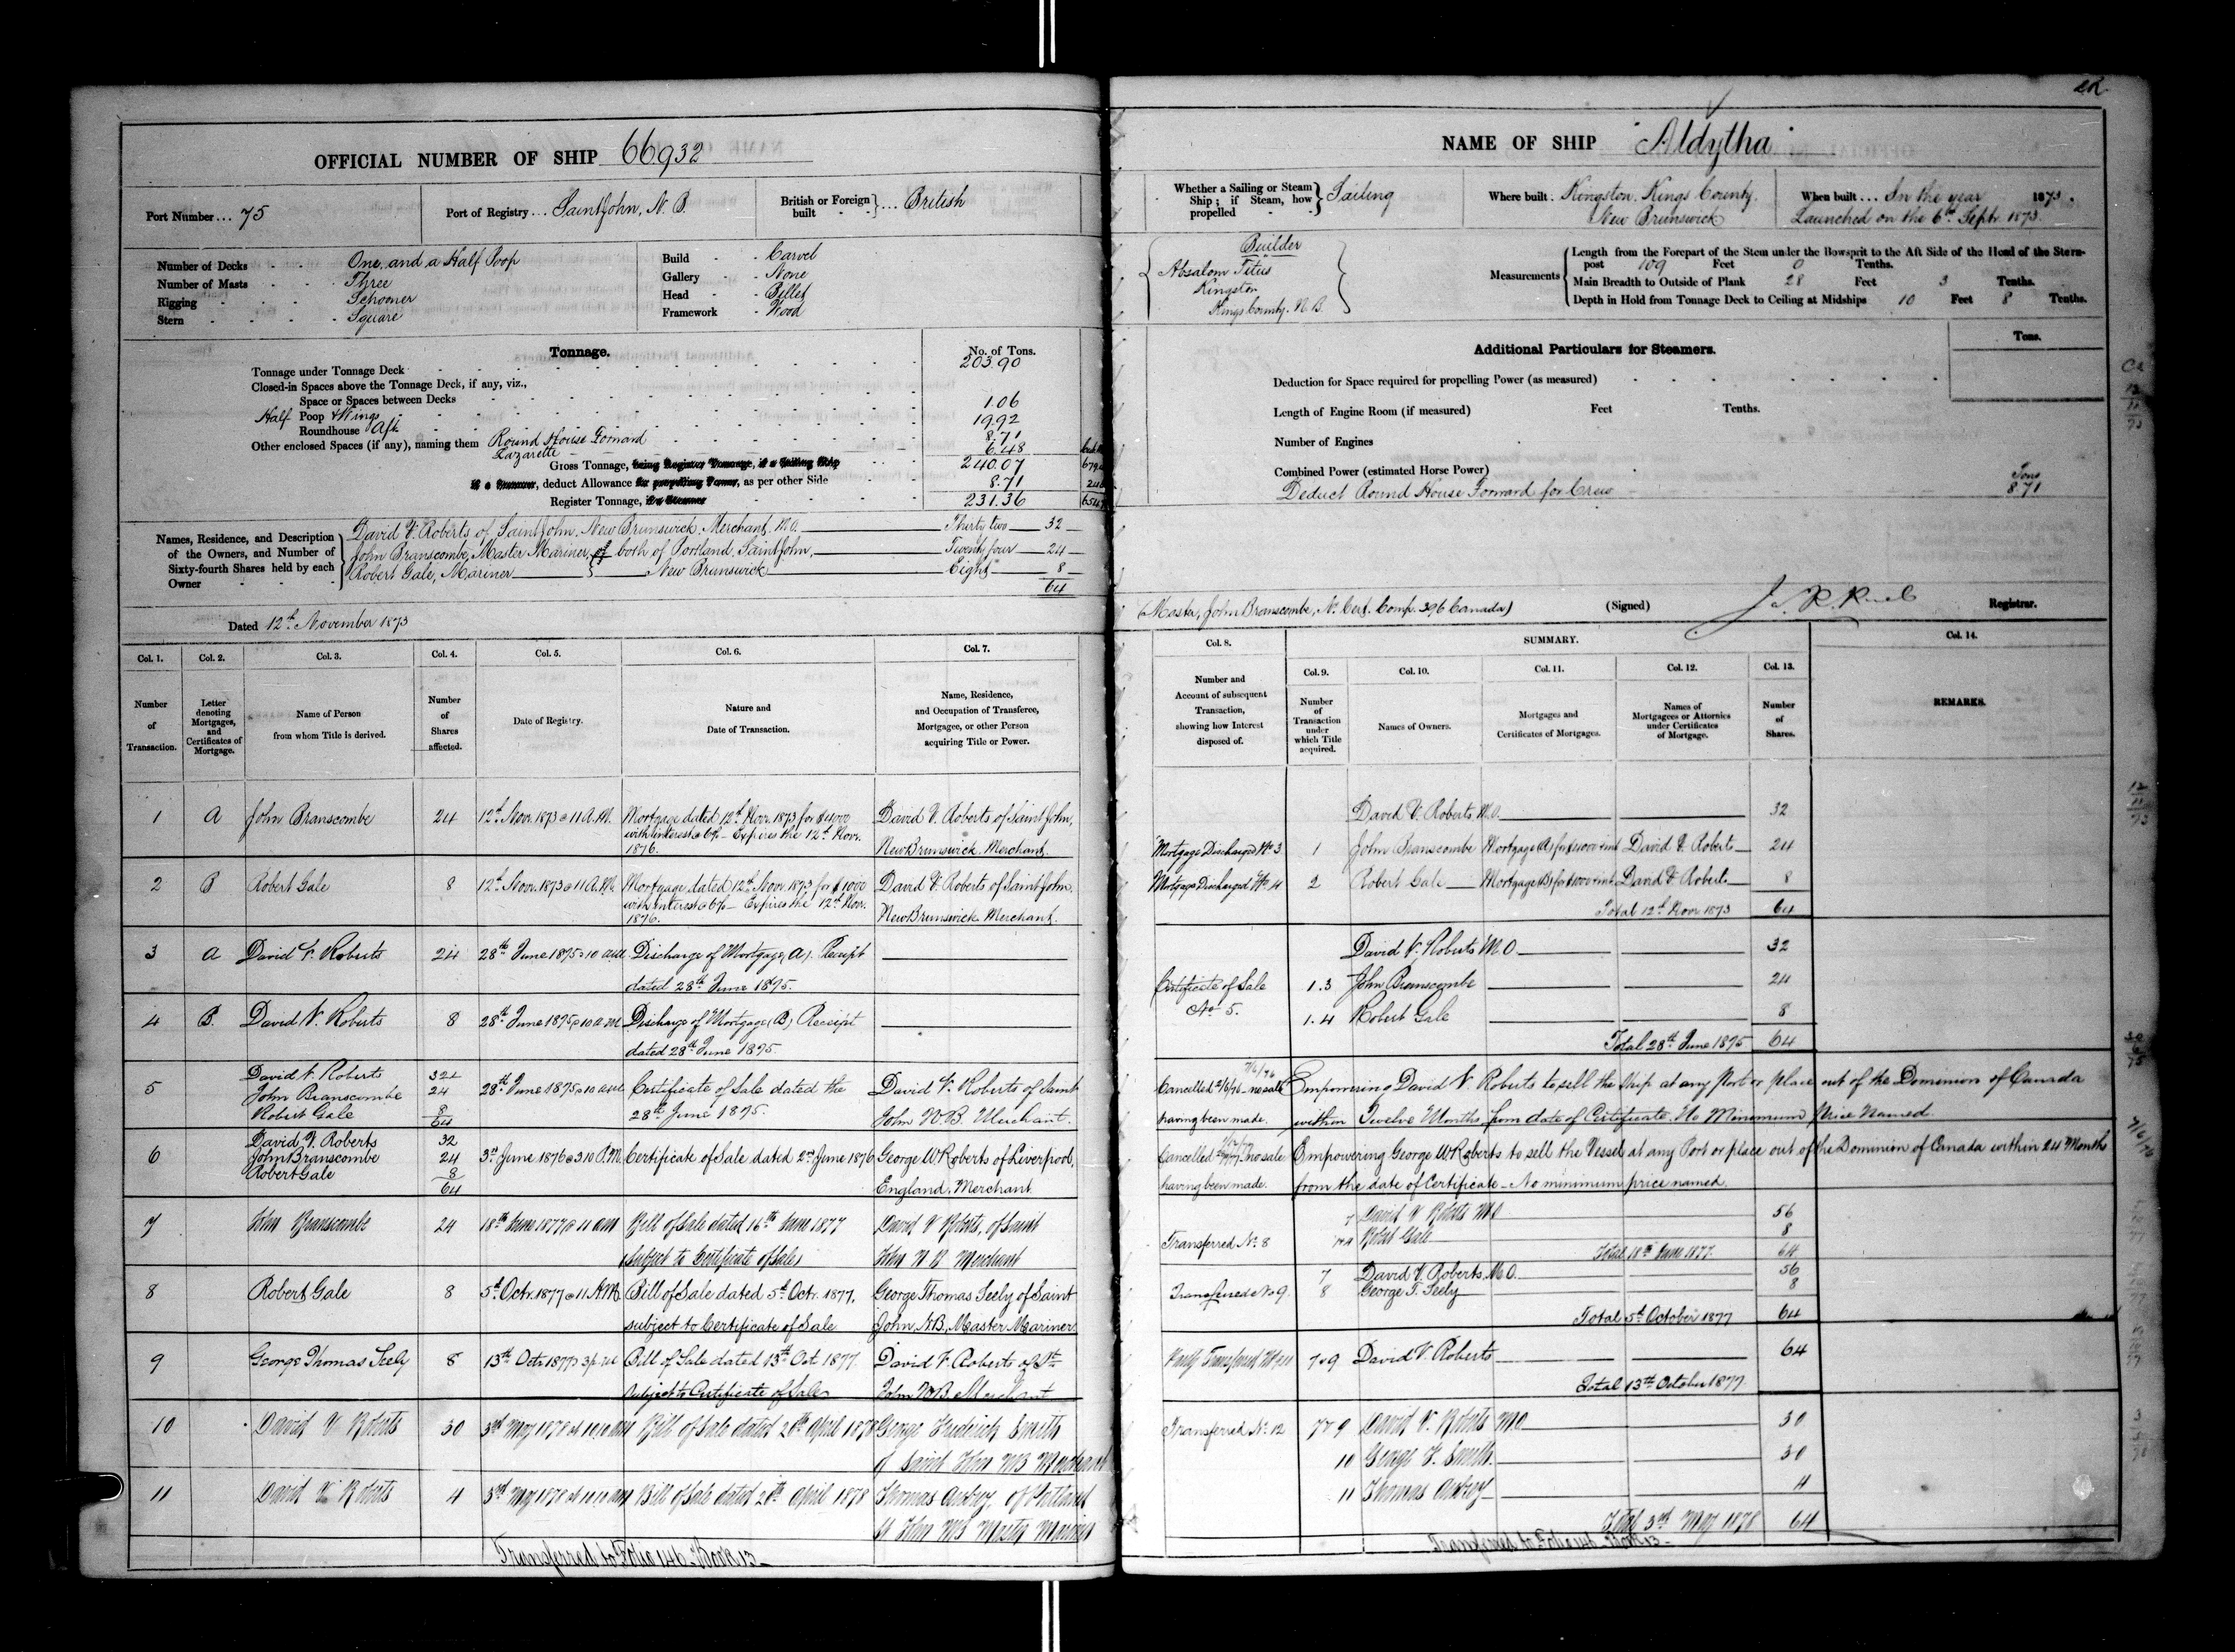 OFFICIAL NUMBER OF SHIP 66932
Port Number ... 75
Port of Registry ... Saint John, N. B.
British or Foreign built } ... British
Number of Decks One and a Half Poop
Number of Masts Three
Rigging Schooner
Stern Square
Build Carvel
Gallery None
Head Billet
Framework Wood
Tonnage. No. of Tons.
Tonnage under Tonnage Deck 203.90
Closed-in Spaces above the Tonnage Deck, if any, viz.,
Space or Spaces between Decks
Half Poop & Wings 1.06
Roundhouse Aft 19.92
Other enclosed Spaces (if any), naming them Round House Forward 8.71
Lazarette 6.48
Gross Tonnage, being Register Tonnage, if a Sailing Ship 240.07
if a Steamer, deduct Allowance for propelling Power, as per other Side 8.71
Register Tonnage, if a Steamer 231.36
Names, Residence, and Description of the Owners, and Number of Sixty-fourth Shares held by each Owner
David V. Roberts of Saint John, New Brunswick, Merchant, M.O. Thirty two 32
John Branscombe, Master Mariner, of both of Portland, Saint John, Twenty four 24
Robert Gale, Mariner New Brunswick Eight 8
64
Dated 12th November 1873
Col. 1. Col. 2. Col. 3. Col. 4. Col. 5. Col. 6. Col. 7.
Number of Transaction.
Letter denoting Mortgages, and Certificates of Mortgage.
Name of Person from whom Title is derived.
Number of Shares affected.
Date of Registry.
Nature and Date of Transaction.
Name, Residence, and Occupation of Transferee, Mortgagee, or other Person acquiring Title or Power.
1 A John Branscombe 24 12th Novr. 1873 @ 11 A.M. Mortgage dated 12th Novr. 1873 for $4000 David V. Roberts of Saint John,
with interest @ 6% - Expires the 12th Novr.
1876. New Brunswick, Merchant.
2 B Robert Gale 8 12th Novr. 1873 @ 11 A.M. Mortgage dated 12th Novr. 1873 for $1000 David V. Roberts of Saint John.
with interest @ 6% - Expires the 12th Novr.
1876. New Brunswick Merchant.
3 A David V. Roberts 24 28th June 1875 @ 10 am Discharge of Mortgage (A). Receipt
dated 28th June 1875.
4 B. David V. Roberts 8 28th June 1875 @ 10 a.m. Discharge of Mortgage (B) Receipt
dated 28th June 1875.
5 David V. Roberts 32
John Branscombe 24 28th June 1875 @ 10 am Certificate of Sale dated the David V. Roberts of Saint
Robert Gale 8 28th June 1875. John N.B. Merchant.
64
6 David V. Roberts 32
John Branscombe 24 3rd June 1876 @ 3.10 P.M. Certificate of Sale dated 2nd June 1876 George W Roberts of Liverpool,
Robert Gale 8
64 England, Merchant
7 John Branscombe 24 18th June 1877 @ 11 am Bill of Sale dated 16th June 1877 David V Roberts, of Saint
(subject to Certificate of Sale) John N B Merchant
8 Robert Gale 8 5th Octr. 1877 @ 11 A.M. Bill of Sale dated 5th Octr. 1877. George Thomas Seely of Saint
subject to Certificate of Sale John, N.B, Master Mariner
9 George Thomas Seely 8 13th Octr 1877 @ 3 p.m Bill of Sale dated 13th Oct 1877. David V. Roberts of St
subject to Certificate of Sale John N.B. Merchant
10 David V Roberts 30 3rd May 1878 at 10.10 am Bill of Sale dated 20th April 1878 George Frederick Smith
of Saint John NB Merchant
11 David V Roberts 4 3rd May 1878 at 10.10 am Bill of Sale dated 20th April 1878 Thomas of Portland
St John NB Master Mariner
Transferred to Folio 146. Book 13
NAME OF SHIP "Aldytha"
Whether a Sailing or Steam Ship; if Steam, how propelled } Sailing
Where built. Kingston, Kings County.
New Brunswick
When built ... In the year 1873.
Launched on the 6th Septr. 1873.
Builder
Absalom Titus
Kingston
Kings County. N.B.
Measurements
Length from the Forepart of the Stem under the Bowsprit to the Aft Side of the Head of the Sternpost 109 Feet 0 Tenths.
Main Breadth to Outside of Plank 28 Feet 3 Tenths.
Depth in Hold from Tonnage Deck to Ceiling at Midships 10 Feet 8 Tenths.
Additional Particulars for Steamers. Tons.
Deduction for Space required for propelling Power (as measured)
Length of Engine Room (if measured) Feet Tenths.
Number of Engines
Combined Power (estimated Horse Power) Tons
Deduct Round House Forward for Crew 8.71
(Master, John Branscombe, No. Cert. Comp. 396 Canada) (Signed) Registrar.
Col. 8. SUMMARY. Col. 14.
Col. 9. Col. 10. Col. 11. Col. 12. Col. 13.
Number and Account of subsequent Transaction, showing how Interest disposed of.
Number of Transaction under which Title acquired.
Names of Owners.
Mortgages and Certificates of Mortgages.
Names of Mortgagees or Attornies under Certificates of Mortgage.
Number of Shares.
REMARKS.
David V. Roberts, M.O. 32
Mortgage Discharged No. 3 1 John Branscombe Mortgage (A) for $4000 & int David V. Roberts 24
Mortgage Discharged No. 4 2 Robert Gale Mortgage (B) for $1000 & int David V Roberts 8
Total 12th Novr. 1873 64
David V. Roberts M.O. 32
Certificate of Sale 1.3 John Branscombe 24
No. 5. 1.4 Robert Gale 8
Total 28th June 1875 64
7/6/76
Cancelled - no sale Empowering David V. Roberts to sell the Ship at any Port or place out of the Dominion of Canada
having been made. within Twelve Months from date of Certificate. No Minimum Price Named.
Cancelled - no sale Empowering George W Roberts to sell the Vessel at any Port or place out of the Dominion of Canada within 24 Months
having been made. from the date of Certificate - No minimum price named.
7 David V Roberts M.O 56
Transferred No. 8 Robert Gale 8
Total 18th June 1877. 64
7 David V. Roberts, M.O. 56
Transferred No 9. 8 George T. Seely 8
Total 5th October 1877 64
Partly Transferred 7 & 9 David V. Roberts 64
Total 13th October 1877
Transferred No. 12 7 & 9 David V. Roberts M.O 30
10 George F. Smith. 30
11 Thomas 4
Total 3rd May 1878 64
Transferred to Folio 146 Book 13